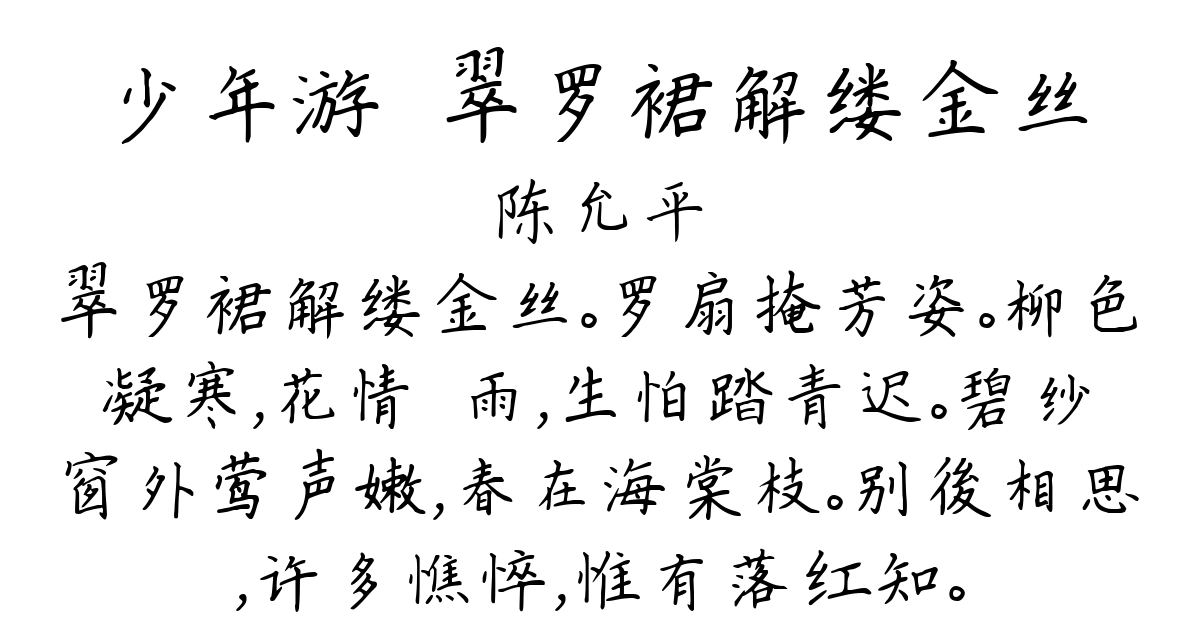 少年游 翠罗裙解缕金丝
陈允平
翠罗裙解缕金丝。罗扇掩芳姿。柳色
凝寒,花情 雨,生怕踏青迟。碧纱
窗外莺声嫩,春在海棠枝。别後相思
,许多憔悴,惟有落红知。